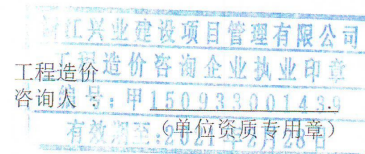 浙江兴业建设项目管理有限公司
工程造价咨询企业执业印章
工程造价
咨询人：
编号：甲150933001439
(单位资质专用章)
有效期至:2021年2月28日